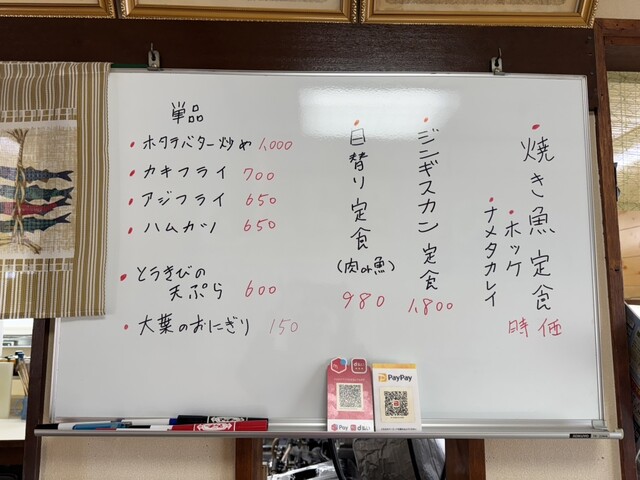 焼き魚定食
時価
・ホッケ
・ナメタカレイ
・ジンギスカン定食
1,800
・日替り定食
(肉or魚)
980
単品
・ホタテバター炒め 1,000
・カキフライ 700
・アジフライ 650
・ハムカツ 650
・とうきびの
天ぷら 600
・大葉のおにぎり 150
Pay
d払い
PayPay